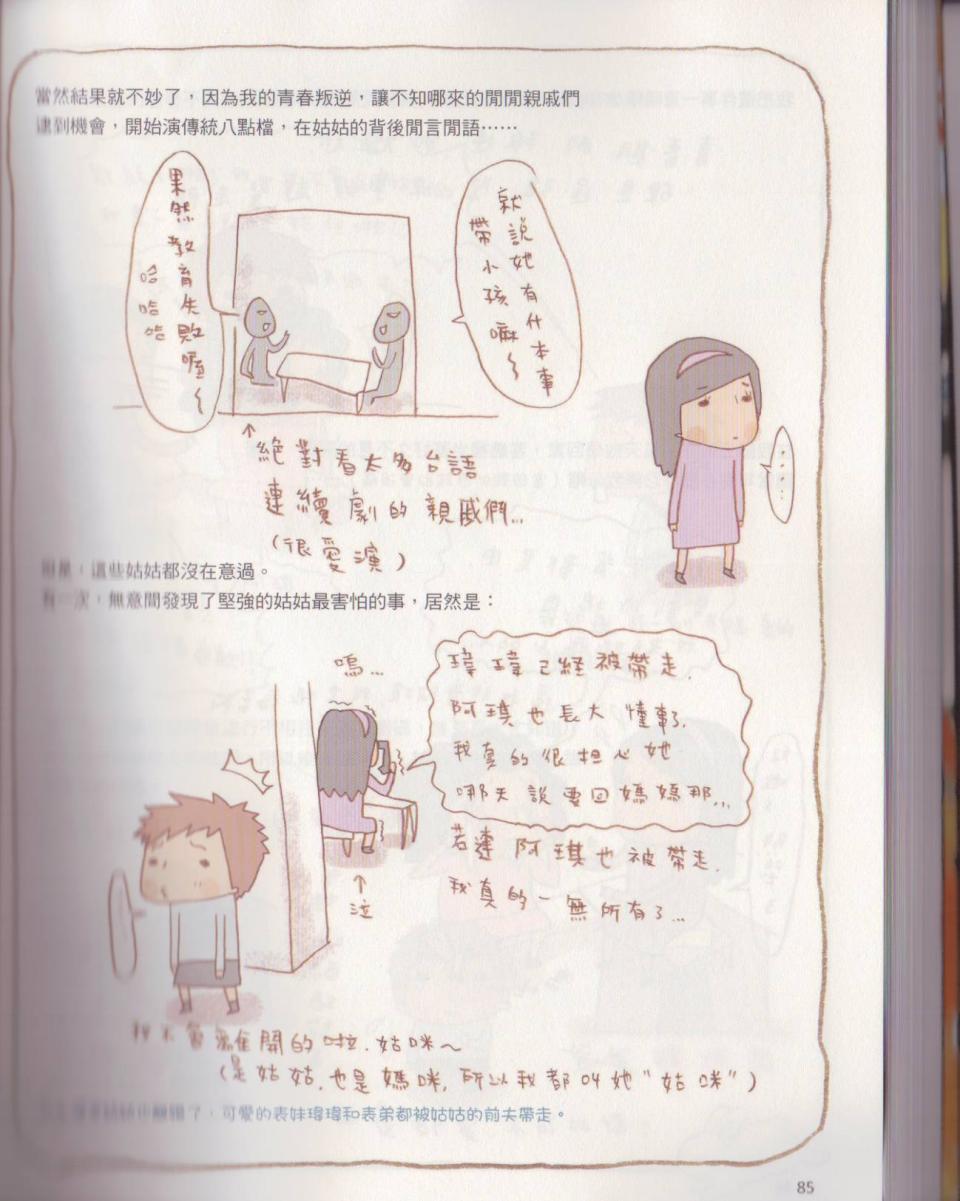 當然結果就不妙了，因為我的青春叛逆，讓不知哪來的閒閒親戚們
逮到機會，開始演傳統八點檔，在姑姑的背後閒言閒語……
就說她有什本事
帶小孩嘛～
果然教育失敗喔～
哈哈哈
↑
絕對看太多台語
連續劇的親戚們…
（很愛演）
……
但是，這些姑姑都沒在意過。
有一次，無意間發現了堅強的姑姑最害怕的事，居然是：
嗚…
瑋瑋已經被帶走，
阿琪也長大懂事了，
我真的很担心她
哪天說要回媽媽那…
若連阿琪也被帶走，
我真的一無所有了…
↑
泣
我不會離開的啦，姑咪～
（是姑姑，也是媽咪，所以我都叫她"姑咪"）
了，可愛的表妹瑋瑋和表弟都被姑姑的前夫帶走。
85